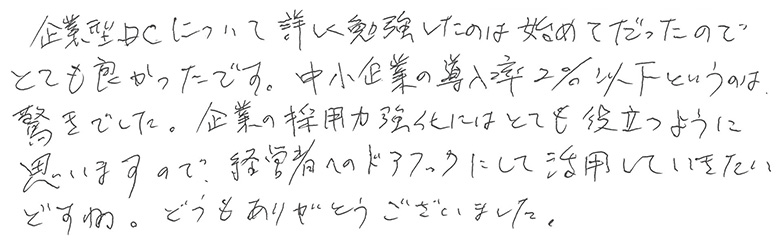 企業型DCについて詳しく勉強したのは始めてだったので
とても良かったです。中小企業の導入率2%以下というのは、
驚きでした。企業の採用力強化にはとても役立つように
思いますので、経営者へのドアフックにして活用していきたい
ですね。どうもありがとうございました。